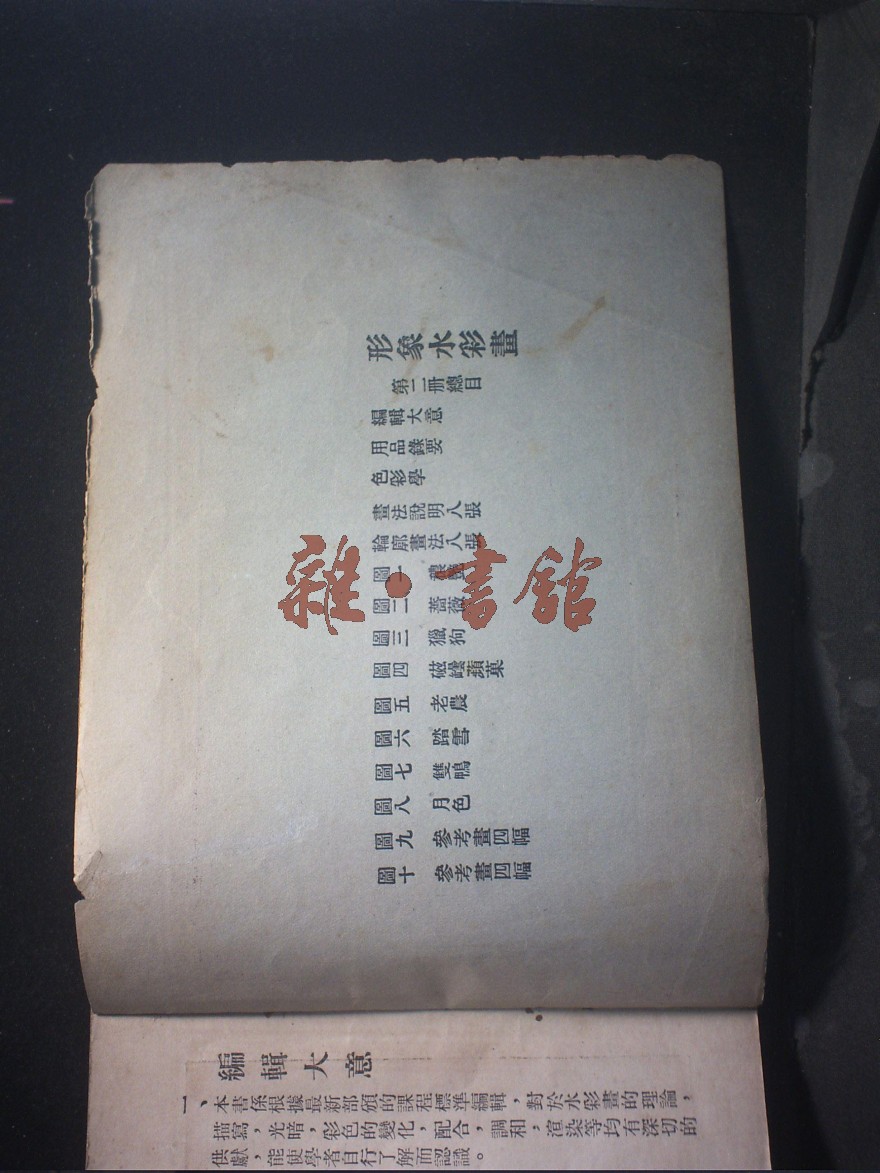 形象水彩畫
第二冊總目
編輯大意
用品錄要
色彩學
畫法說明八張
輪廓畫法八張
圖一
圖二 薔薇
圖三 獵狗
圖四 磁罎蘋菓
圖五 老農
圖六 踏雪
圖七 雙鴨
圖八 月色
圖九 參考畫四幅
圖十 參考畫四幅
雜·書館
編輯大意
一、本書係根據最新部頒的課程標準編輯,對於水彩畫的理論,
描寫,光暗,彩色的變化,配合,調和,渲染等均有深切的
供獻,能使學者自行了解而認識。